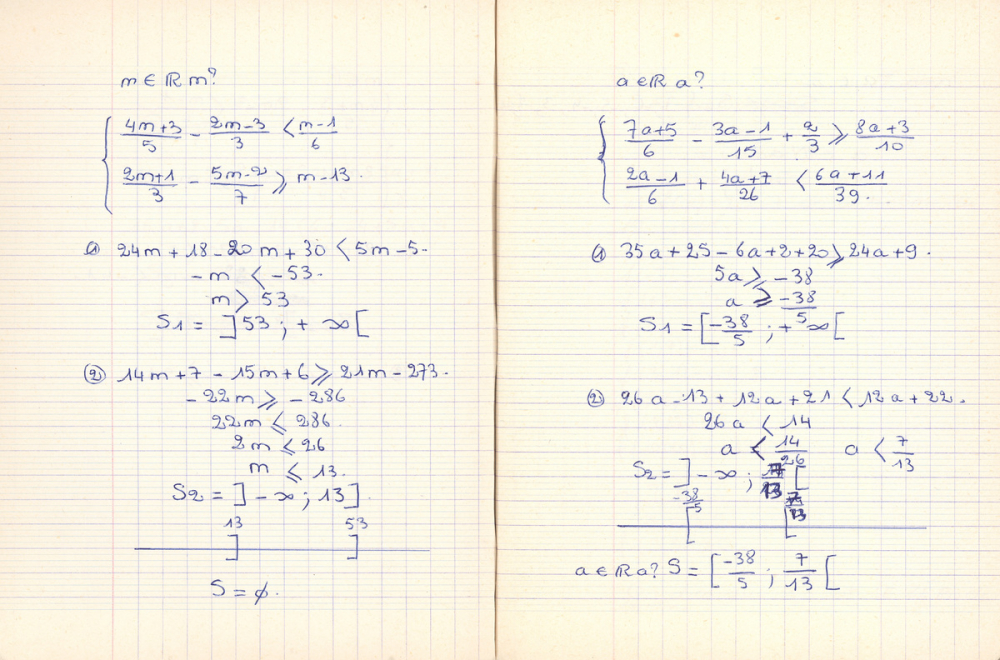 m ∈ ℝ m?
{ (4m+3)/5 - (2m-3)/3 < (m-1)/6
(2m+1)/3 - (5m-2)/7 ⩾ m-13.
① 24m + 18 - 20m + 30 < 5m - 5.
-m < -53.
m > 53
S1 = ]53 ; + ∞[
② 14m + 7 - 15m + 6 ⩾ 21m - 273.
- 22m ⩾ - 286
22m ⩽ 286.
2m ⩽ 26
m ⩽ 13.
S2 = ] - ∞ ; 13].
13 53
] ]
S = ∅.
a ∈ ℝ a?
{ (7a+5)/6 - (3a-1)/15 + 2/3 ⩾ (8a+3)/10
(2a-1)/6 + (4a+7)/26 < (6a+11)/39.
① 35a + 25 - 6a + 2 + 20 ⩾ 24a + 9.
5a ⩾ -38
a ⩾ -38/5
S1 = [-38/5 ; + ∞[
② 26a - 13 + 12a + 21 < 12a + 22.
26a < 14
a < 14/26 a < 7/13
S2 = ] - ∞ ; 7/13 [
-38/5 7/13
[ [
a ∈ ℝ a? S = [-38/5 ; 7/13 [